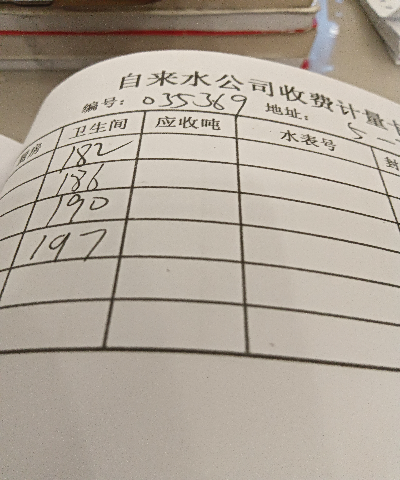 自来水公司收费计量
编号: 035369 地址: 5-
厨房 卫生间 应收吨 水表号 封
182
186
190
197